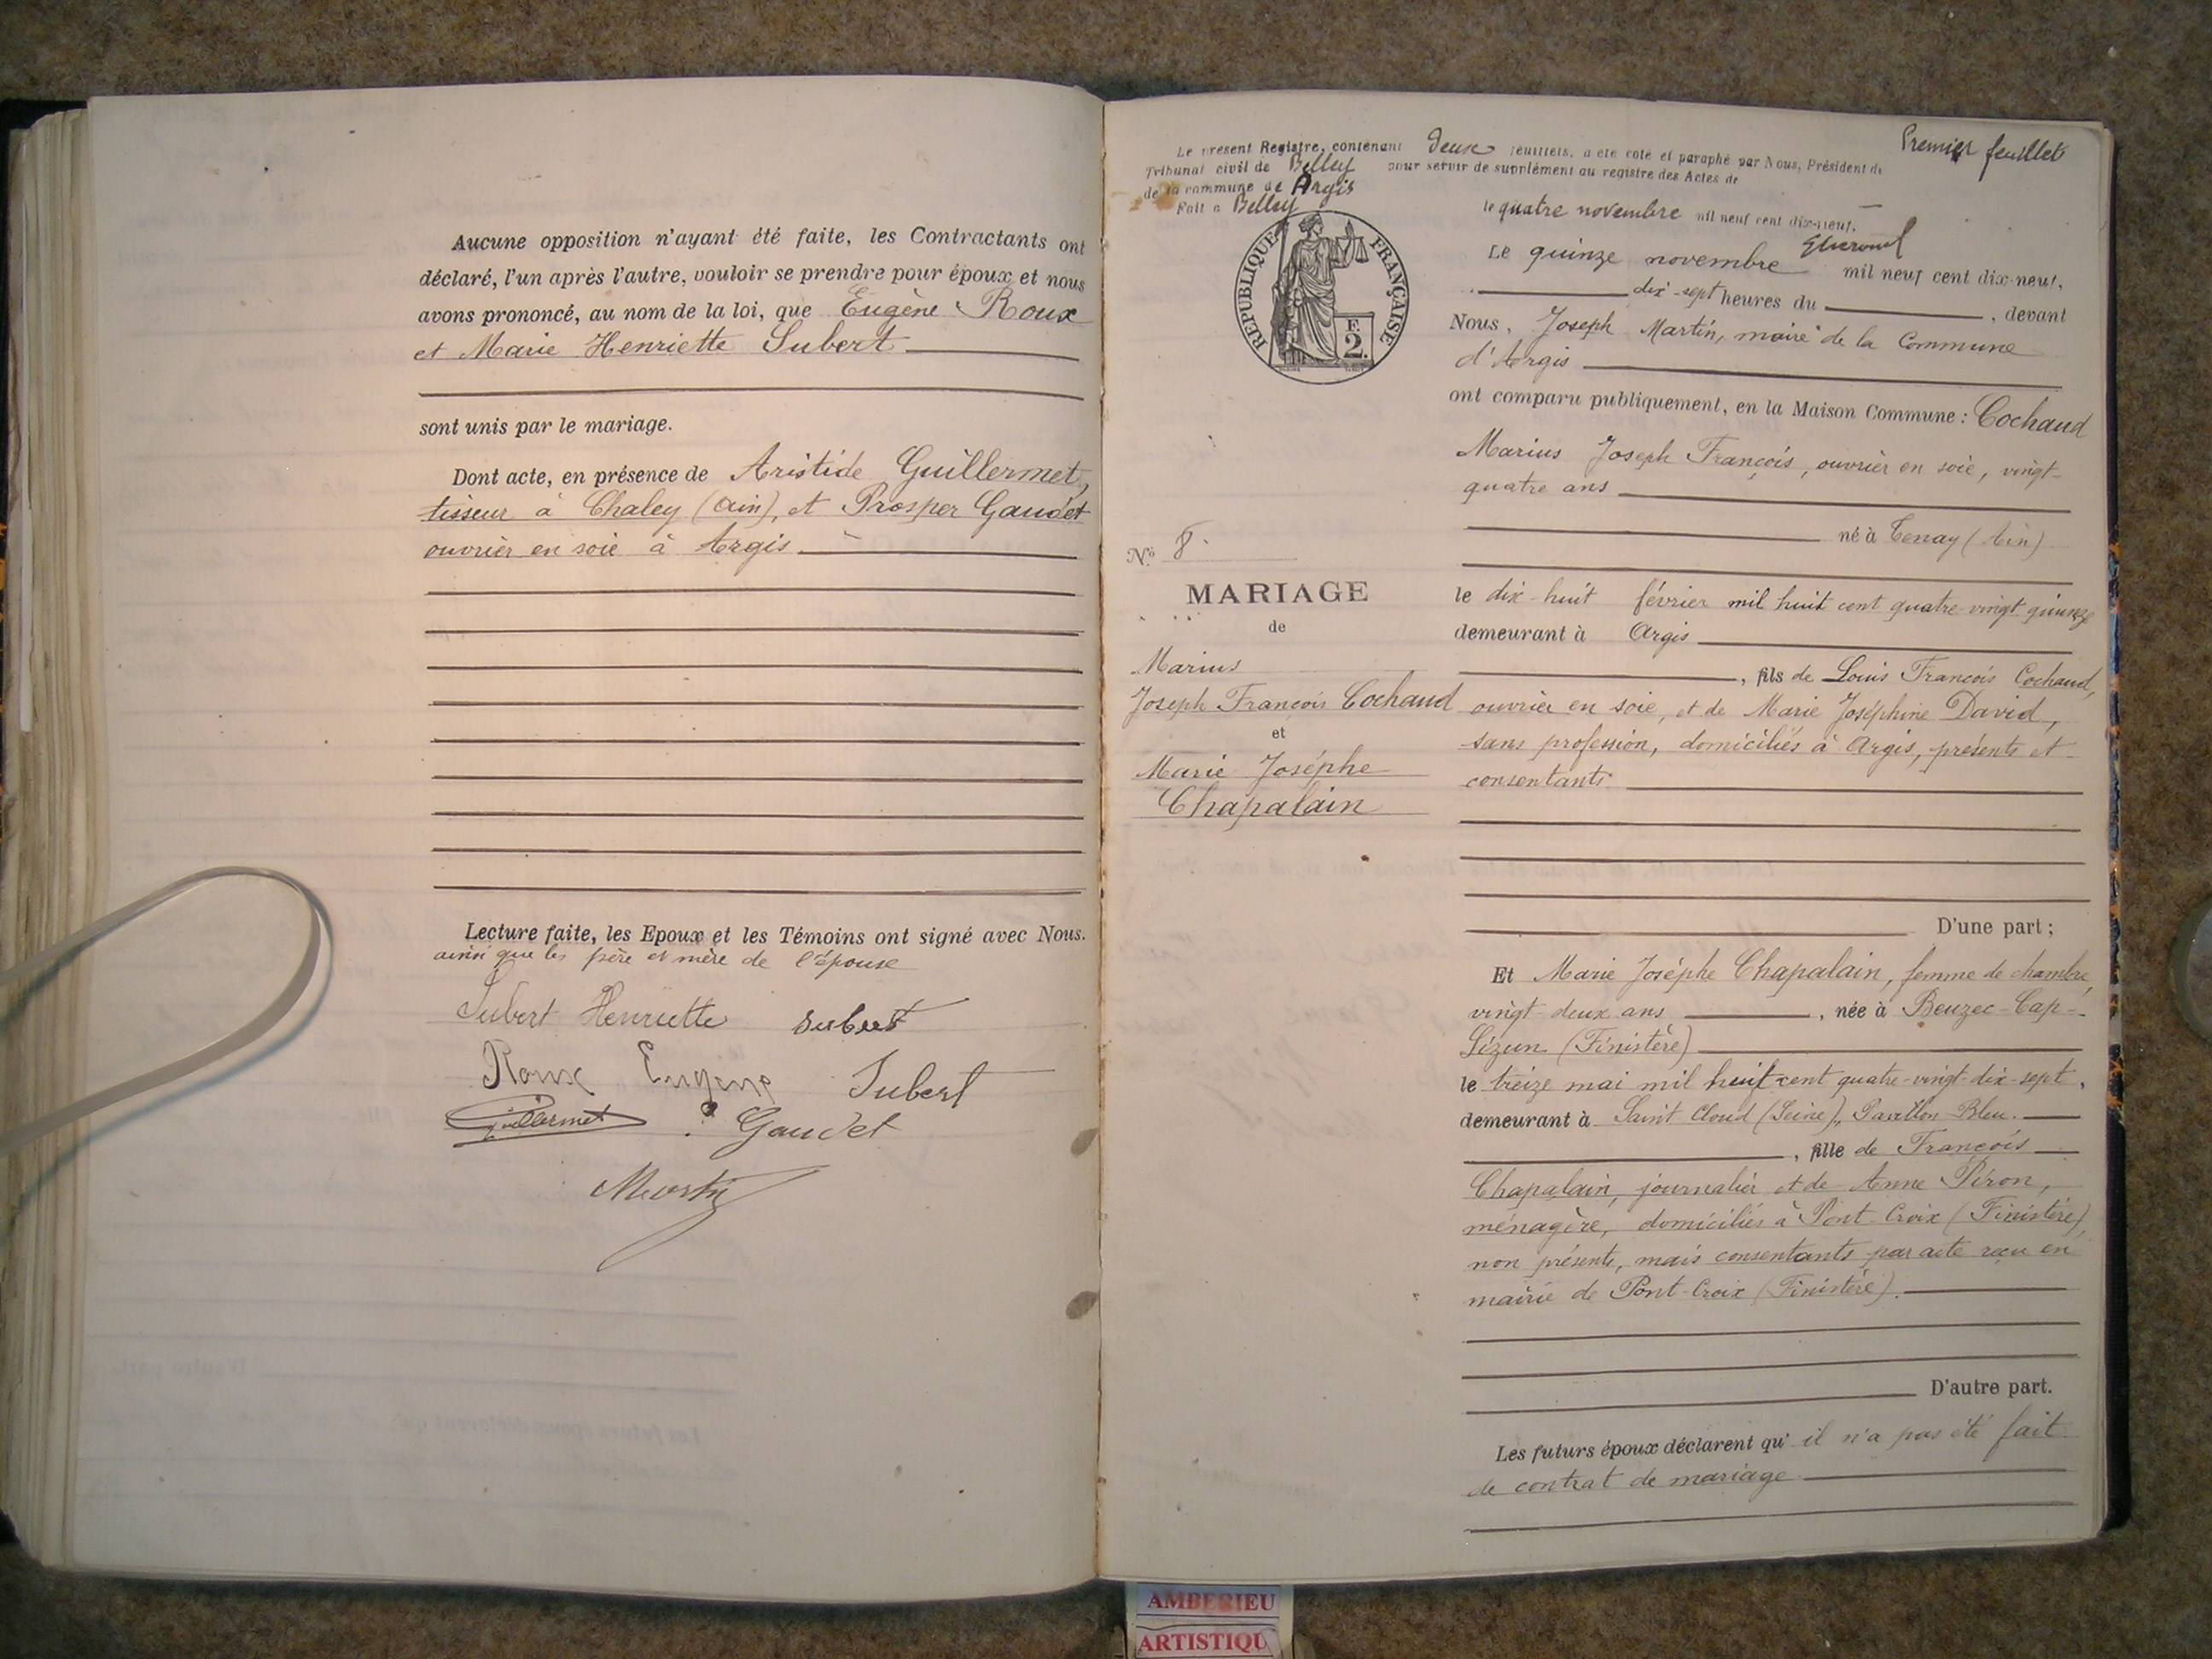 Aucune opposition n'ayant été faite, les Contractants ont
déclaré, l'un après l'autre, vouloir se prendre pour époux et nous
avons prononcé, au nom de la loi, que Eugène Roux
et Marie Henriette Subert
sont unis par le mariage.
Dont acte, en présence de Aristide Guillermet,
tisseur à Chaley (Ain), et Prosper Gaudet
ouvrier en soie à Argis.
Lecture faite, les Epoux et les Témoins ont signé avec Nous.
ainsi que les père et mère de l'épouse
Subert Henriette Subert
Roux Eugène Subert
Guillermet Gaudet
Martin
Premier feuillet
Le présent Registre, contenant deux feuillets, a été coté et paraphé par Nous, Président du
Tribunal civil de Belley pour servir de supplément au registre des Actes de
de la commune de Argis
Fait à Belley
le quatre novembre mil neuf cent dix-neuf.
RÉPUBLIQUE FRANÇAISE
E
2.
Le quinze novembre mil neuf cent dix-neuf,
dix-sept heures du , devant
Nous, Joseph Martin, maire de la Commune
d'Argis
ont comparu publiquement, en la Maison Commune : Cochaud
Marius Joseph François, ouvrier en soie, vingt-
quatre ans
né à Tenay (Ain)
le dix-huit février mil huit cent quatre-vingt quinze
demeurant à Argis
, fils de Louis François Cochaud,
ouvrier en soie, et de Marie Joséphine David,
sans profession, domiciliés à Argis, présents et
consentants
D'une part ;
No 8.
MARIAGE
de
Marius
Joseph François Cochaud
et
Marie Josèphe
Chapalain
Et Marie Josèphe Chapalain, femme de chambre,
vingt-deux ans , née à Beuzec-Cap-
Sizun (Finistère)
le treize mai mil huit cent quatre-vingt-dix-sept,
demeurant à Saint Cloud (Seine), Pavillon Bleu.
, fille de François
Chapalain, journalier et de Anne Péron,
ménagère, domiciliés à Pont-Croix (Finistère),
non présents, mais consentants par acte reçu en
mairie de Pont-Croix (Finistère).
D'autre part.
Les futurs époux déclarent qu'il n'a pas été fait
de contrat de mariage
AMBERIEU
ARTISTIQU